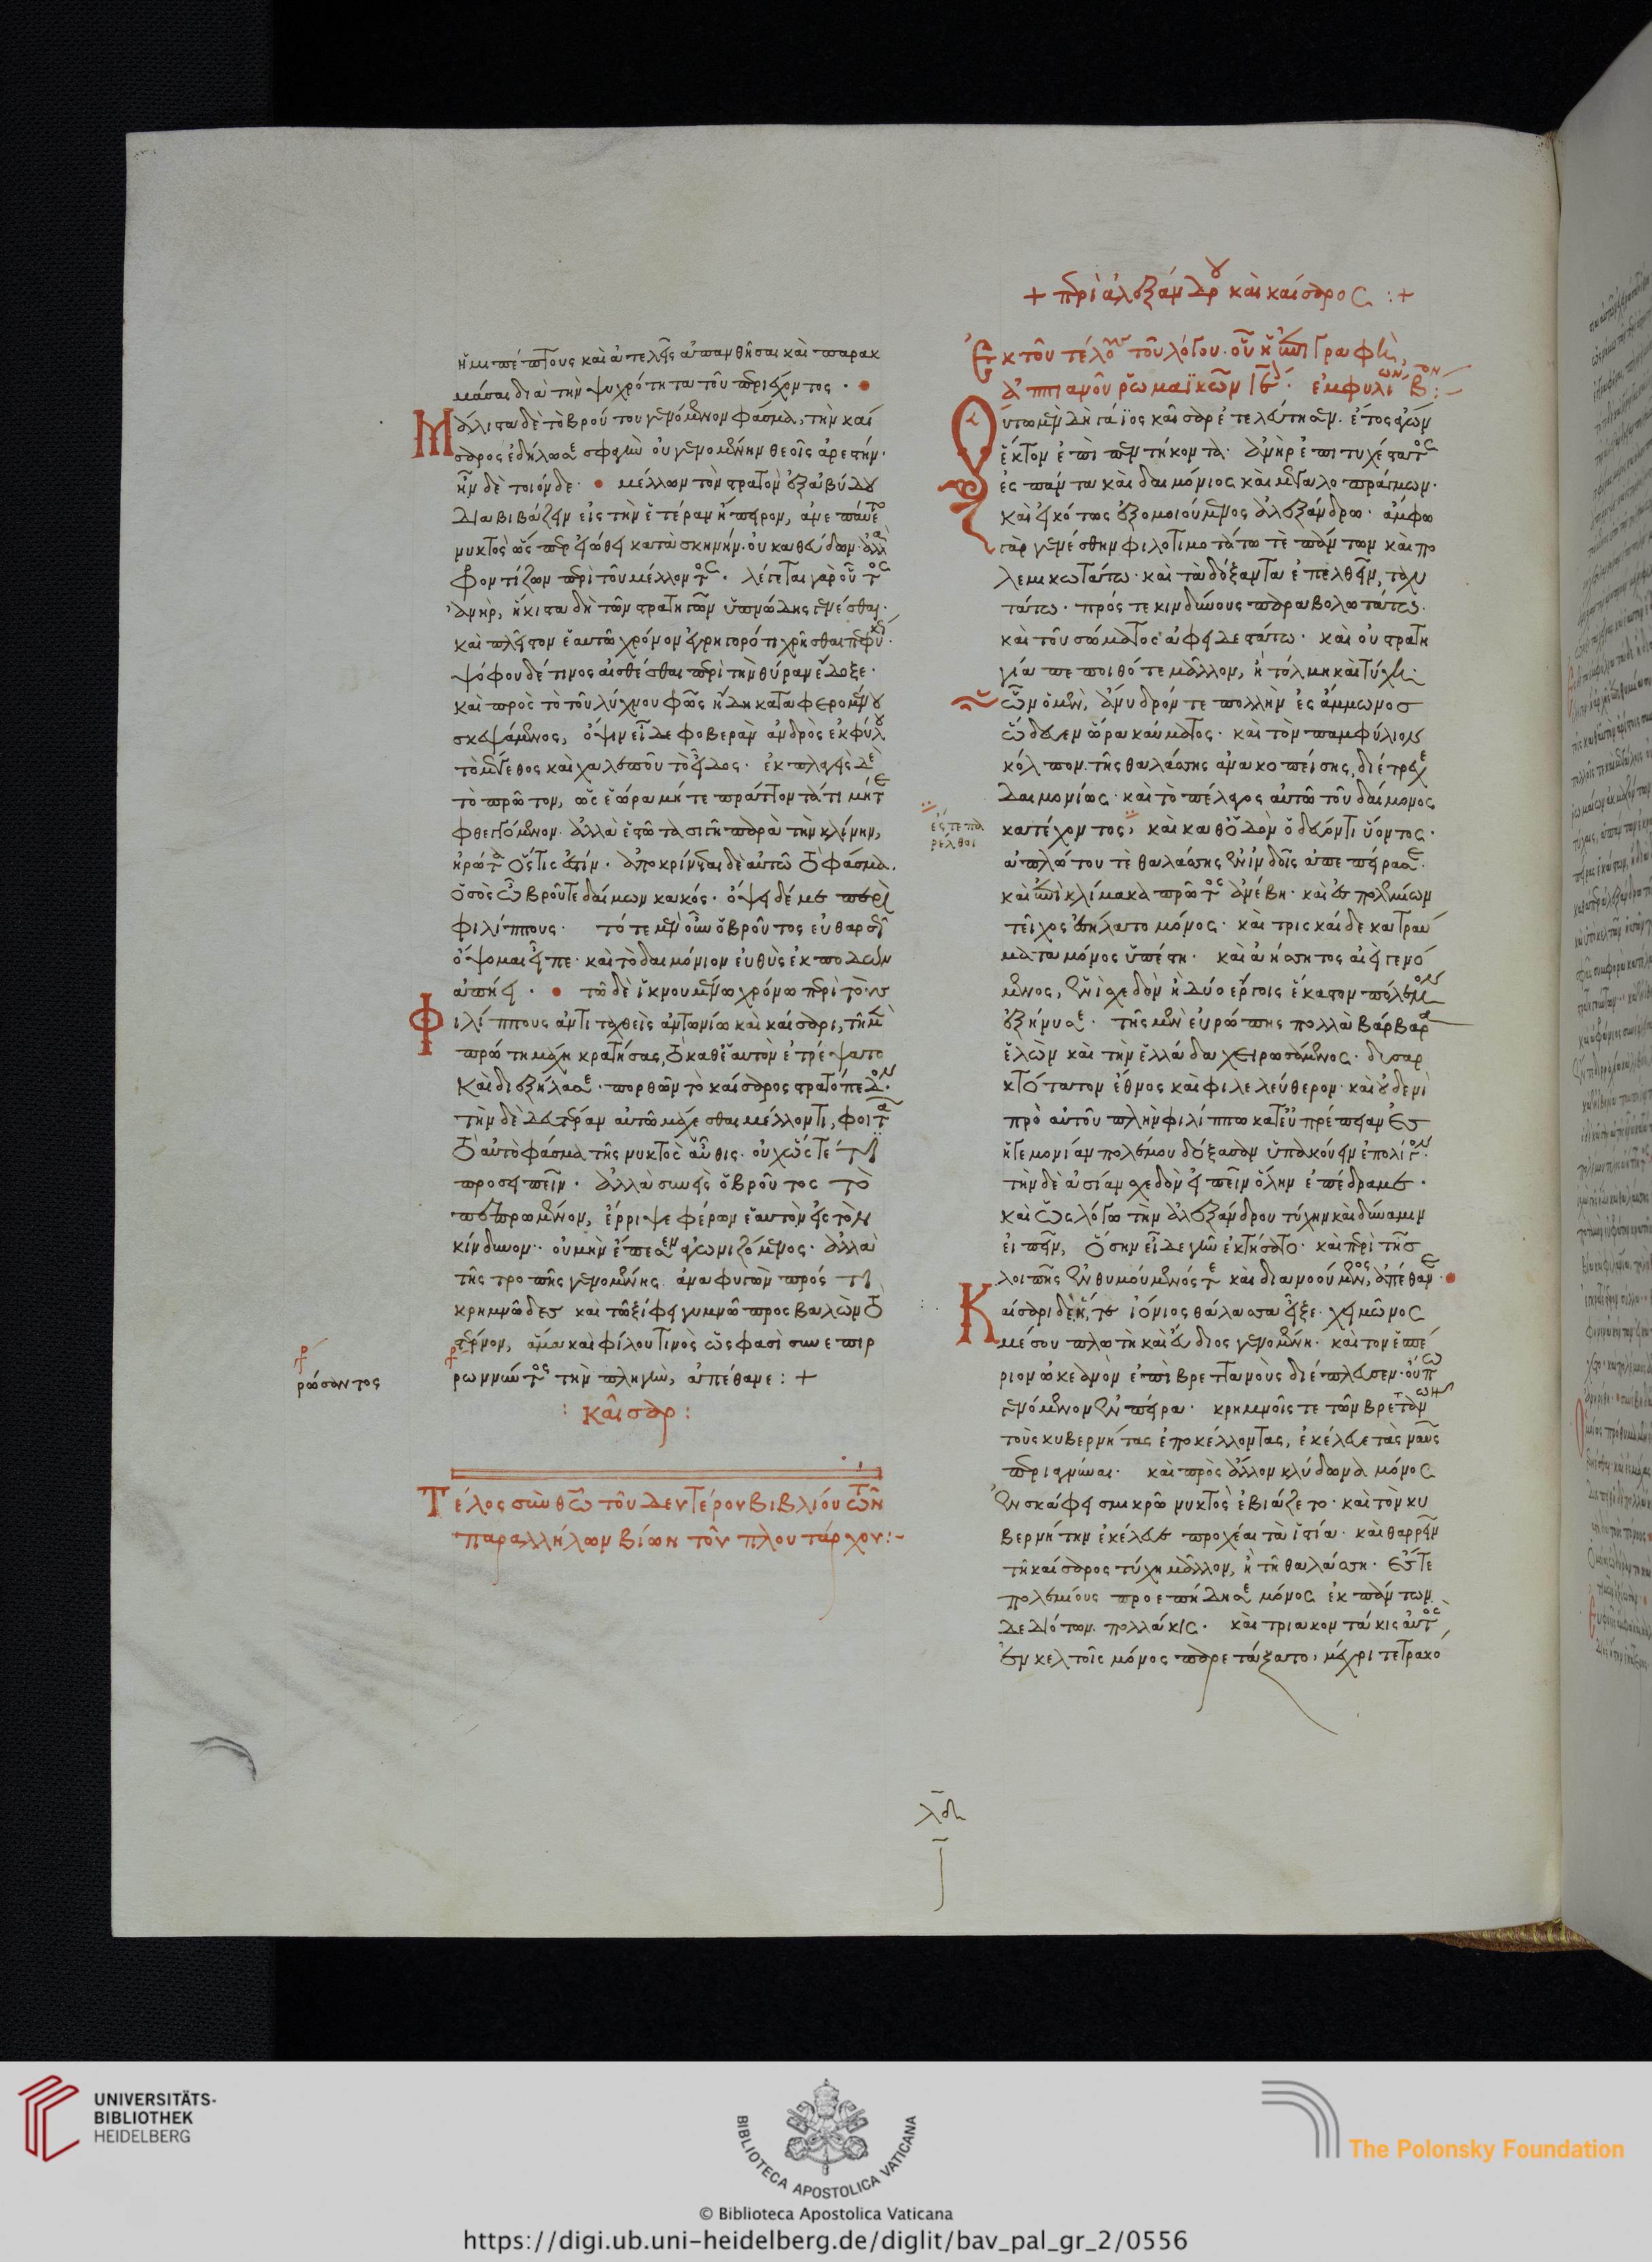 ἡμιπέπτους καὶ ἀτελεῖς ἀπανθῆσαι καὶ παρακ
μάσαι διὰ τὴν ψυχρότητα τοῦ περιέχοντος ·
Μάλιστα δὲ τὸ βρούτου γενόμενον φάσμα, τὴν καί
σαρος ἐδήλωσε σφαγὴν οὐ γενομένην θεοῖς ἀρεστήν·
ἦν δὲ τοιόνδε · μέλλων τὸν στρατὸν ἐξ ἀβύδου
διαβιβάζειν εἰς τὴν ἑτέραν ἤπειρον, ἀνεπαύετο
νυκτὸς ὥσπερ εἰώθει κατὰ σκηνήν· οὐ καθεύδων· ἀλλὰ
φροντίζων περὶ τοῦ μέλλοντος · λέγεται γὰρ οὗτος
ἀνὴρ, ἥκιστα δὴ τῶν στρατηγῶν ὑπνώδης γενέσθαι·
καὶ πλεῖστον ἑαυτῶ χρόνον ἐγρηγορότι χρῆσθαι πεφυκώς·
ψόφου δέ τινος αἰσθέσθαι περὶ τὴν θύραν ἔδοξε·
καὶ πρὸς τὸ τοῦ λύχνου φῶς ἤδη καταφερομένου
σκεψάμενος, ὄψιν εἶδε φοβερὰν ἀνδρὸς ἐκφύλου
τὸ μέγεθος καὶ χαλεποῦ τὸ εἶδος· ἐκπλαγεὶς δὲ
τὸ πρῶτον, ὡς ἑώρα μήτε πράττοντά τι μήτε
φθεγγόμενον· ἀλλὰ ἑστῶτα σιγῆ παρὰ τὴν κλίνην,
ἠρώτα ὅστις ἐστίν· ἀποκρίνεται δὲ αὐτῶ τὸ φάσμα·
ὁ σὸς ὦ βροῦτε δαίμων κακός· ὄψει δέ με περὶ
φιλίππους· τότε μὲν οὖν ὁ βροῦτος εὐθαρσῶς
ὄψομαι εἶπε· καὶ τὸ δαιμόνιον εὐθὺς ἐκποδὼν
ἀπήει · τῶ δὲ ἱκνουμένω χρόνω περὶ τοὺς
Φιλίππους ἀντιταχθεὶς ἀντωνίω καὶ καίσαρι, τῆ μὲν
πρώτη μάχη κρατήσας, τὸ καθ' ἑαυτὸν ἐτρέψατο
καὶ διεξήλασε· πορθῶν τὸ καίσαρος στρατόπεδον·
τὴν δὲ δευτέραν αὐτῶ μάχεσθαι μέλλοντι, φοιτᾶ
τὸ αὐτὸ φάσμα τῆς νυκτὸς αὖθις· οὐχ ὥστε τι
προσειπεῖν· ἀλλὰ συνεὶς ὁ βροῦτος τὸ
πεπρωμένον, ἔρριψε φέρων ἑαυτὸν εἰς τὸν
κίνδυνον· οὐ μὴν ἔπεσεν ἀγωνιζόμενος· ἀλλὰ
τῆς τροπῆς γενομένης ἀναφυγὼν πρός τι
κρημνῶδες καὶ τῶ ξίφει γυμνῶ προσβαλὼν τὸ
στέρνον, ἅμα καὶ φίλου τινὸς ὥς φασι συνεπιρ
ρωννύντος τὴν πληγὴν, ἀπέθανε : +
ρώσαντος
: καῖσαρ :
Τέλος σὺν θεῶ τοῦ δευτέρου βιβλίου τῶν
παραλλήλων βίων τοῦ πλουτάρχου:-
+ περὶ ἀλεξάνδρου καὶ καίσαρος :+
Ἐκ τοῦ τέλους τοῦ λόγου· οὗ ἡ ἐπιγραφὴ,
ἀππιανοῦ ῥωμαϊκῶν ιδ· ἐμφυλίων, β:-
Οὕτω μὲν δὴ γάϊος καῖσαρ ἐτελεύτησεν· ἔτος ἄγων
ἕκτον ἐπὶ πεντήκοντα· ἀνὴρ ἐπιτυχέστατος
ἐς πάντα καὶ δαιμόνιος καὶ μεγαλοπράγμων·
καὶ εἰκότως ἐξομοιούμενος ἀλεξάνδρω· ἄμφω
γὰρ γενέσθην φιλοτιμοτάτω τὲ πάντων καὶ πο
λεμικωτάτω· καὶ τὰ δόξαντα ἐπελθεῖν, ταχυ
τάτω· πρός τε κινδύνους παραβολωτάτω·
καὶ τοῦ σώματος ἀφειδεστάτω· καὶ οὐ στρατη
γία πεποιθότε μᾶλλον, ἢ τόλμη καὶ τύχη·
ὧν ὁ μὲν, ἄνυδρόν τε πολλὴν ἐς ἄμμωνος
ὥδευεν ὥρα καύματος· καὶ τὸν παμφύλιον
κόλπον τῆς θαλάσσης ἀνακοπείσης, διέτρεχε
δαιμονίως· καὶ τὸ πέλαγος αὐτῶ τοῦ δαίμονος
κατέχοντος, καὶ καθ' ὁδὸν ὁδεύοντι ὕοντος·
ἀπλώτου τὲ θαλάσσης ἐν ἰνδοῖς ἀπεπείρασε·
ἐς τε πα
ρέλθοι
καὶ ἐπὶ κλίμακα πρῶτος ἀνέβη· καὶ ἐς πολεμίων
τεῖχος ἐσήλατο μόνος· καὶ τρισκαίδεκα τραύ
ματα μόνος ὑπέστη· καὶ ἀήσσητος αἰεὶ γενό
μενος, ἑνὶ σχεδὸν ἢ δύο ἔργοις ἕκαστον πόλεμον
ἐξήνυσε· τῆς μὲν εὐρώπης πολλὰ βάρβαρα
ἑλὼν καὶ τὴν ἑλλάδα χειρωσάμενος· δυσαρ
κτότατον ἔθνος καὶ φιλελεύθερον· καὶ οὐδενὶ
πρὸ αὐτοῦ πλὴν φιλίππω κατ' εὐπρέπειαν ἐς
ἡγεμονίαν πολέμου δόξασαν ὑπακούειν ἐπ' ὀλίγον·
τὴν δὲ ἀσίαν σχεδὸν εἰπεῖν ὅλην ἐπέδραμε·
καὶ ὡς λόγω τὴν ἀλεξάνδρου τύχην καὶ δύναμιν
εἰπεῖν, ὅσην εἶδε γῆν ἐκτήσατο· καὶ περὶ τῆς
λοιπῆς ἐνθυμούμενός τε καὶ διανοούμενος, ἀπέθανεν·
Καίσαρι δὲ ἥ, τε ἰόνιος θάλασσα εἶξε· χειμῶνος
μέσου πλωτὴ καὶ εὔδιος γενομένη· καὶ τὸν ἑσπέ
ριον ὠκεανὸν ἐπὶ βρεττανοὺς διέπλευσεν· οὔπω
γενόμενον ἐν πείρα· κρημνοῖς τε τῶν βρεττανῶν
τοὺς κυβερνήτας ἐποκέλλοντας, ἐκέλευε τὰς ναῦς
περιαγνύναι· καὶ πρὸς ἄλλον κλύδωνα μόνος
ἐν σκάφει σμικρῶ νυκτὸς ἐβιάζετο· καὶ τὸν κυ
βερνήτην ἐκέλευε προχέαι τὰ ἱστία· καὶ θαρρεῖν
τῆ καίσαρος τύχη μᾶλλον, ἢ τῆ θαλάσση· ἔς τε
πολεμίους προεπήδησε μόνος ἐκ πάντων
δεδιότων πολλάκις· καὶ τριακοντάκις αὐτὸς
ἐν κελτοῖς μόνος παρετάξατο, μέχρι τετρακό
λδ
UNIVERSITÄTS-
BIBLIOTHEK
HEIDELBERG
BIBLIOTECA APOSTOLICA VATICANA
© Biblioteca Apostolica Vaticana
https://digi.ub.uni-heidelberg.de/diglit/bav_pal_gr_2/0556
The Polonsky Foundation